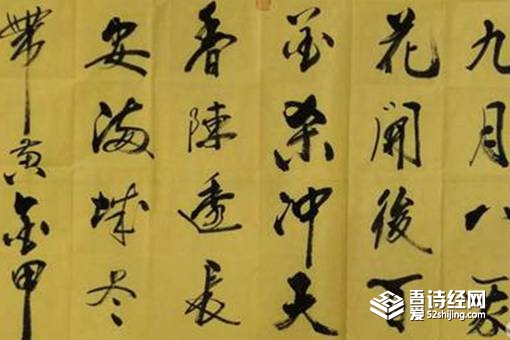 九月八我
花開後百
花杀冲天
香陣透長
安滿城尽
帶黄金甲
吾爱诗经网
52shijing.com